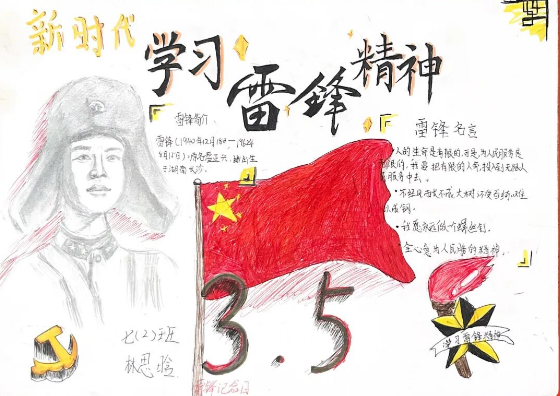 新时代
学习
雷锋
精神
雷锋简介
雷锋(1940年12月18日—1962年
8月15日),原名雷正兴,出生
于湖南长沙。
雷锋名言
人的生命是有限的,可是,为人民服务是
无限的,我要把有限的人生,投入到无限的
服务中去。
·不经风雨,长不成大树,不受百炼,难
以成钢。
·我愿永远做一个螺丝钉。
全心全意为人民服务的精神。
3.5
七(2)班
林思
雷锋纪念日
学习雷锋精神